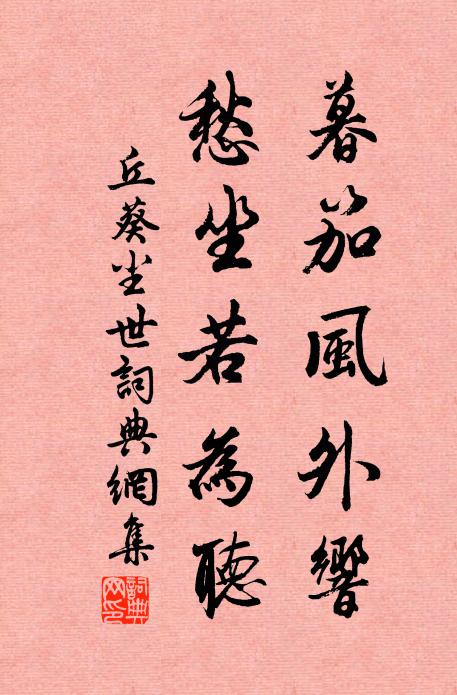 暮笳風外響
愁坐若為聽
丘葵坐世詞典網集
詞典網印